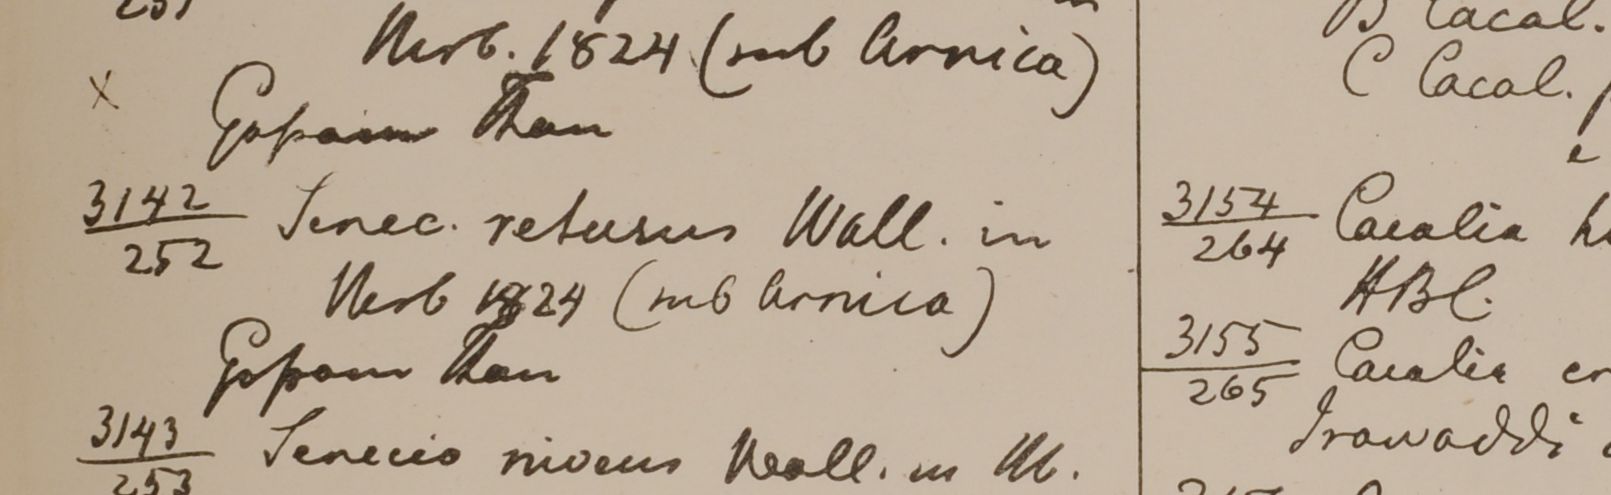 251
Herb. 1824 (sub Arnica)
x
Gossain Than
3142
252
Senec. retusus Wall. in
Herb 1824 (sub Arnica)
Gossain Than
3143
253
Senecio niveus Wall. in Hb.
B Cacal.
C Cacal.
3154
264
Cacalia
HBC.
3155
265
Cacalia
Irawaddi